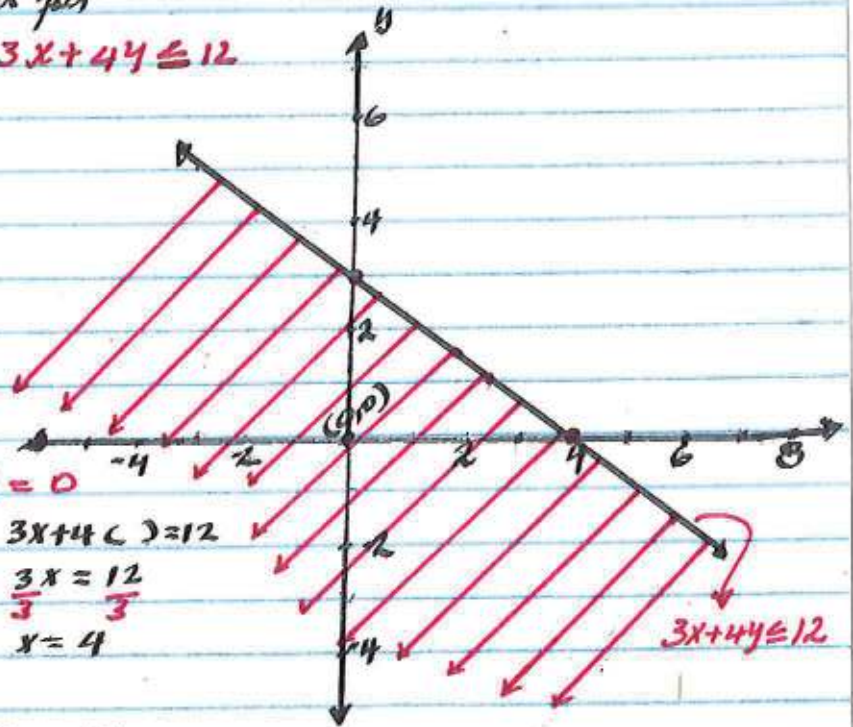 3x+4y ≤ 12
y
6
4
2
(0,0)
-4 -2 2 4 6 8
= 0
3x+4( )=12
-2
3x = 12
3 3
x = 4
-4
3x+4y≤12